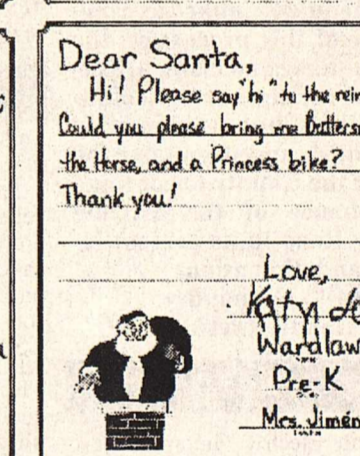 Dear Santa,
Hi! Please say "hi" to the
Could you please bring me
the Horse, and a Princess bike?
Thank you!
Love,
Katy
Wardlaw
Pre-K
Mrs.